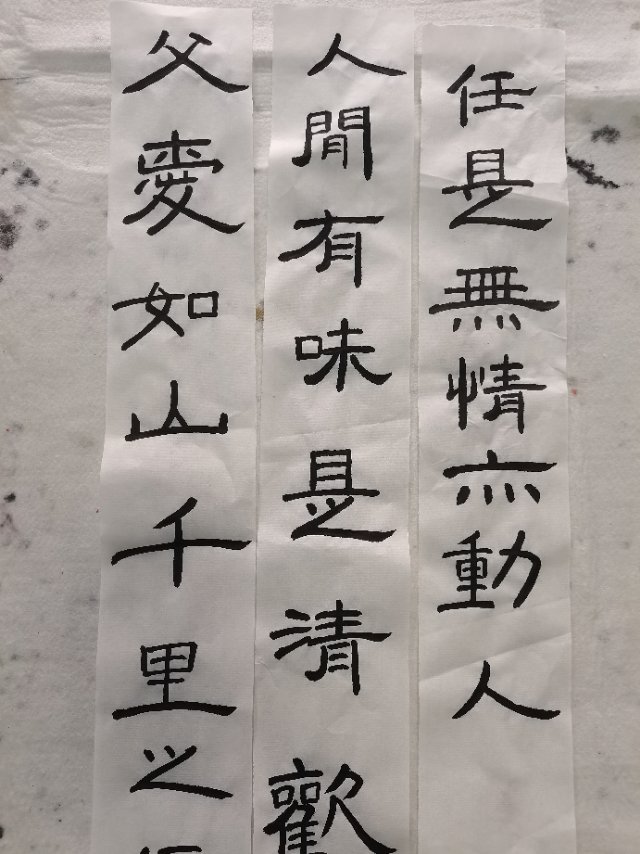 任是無情亦動人
人間有味是清歡
父愛如山千里之